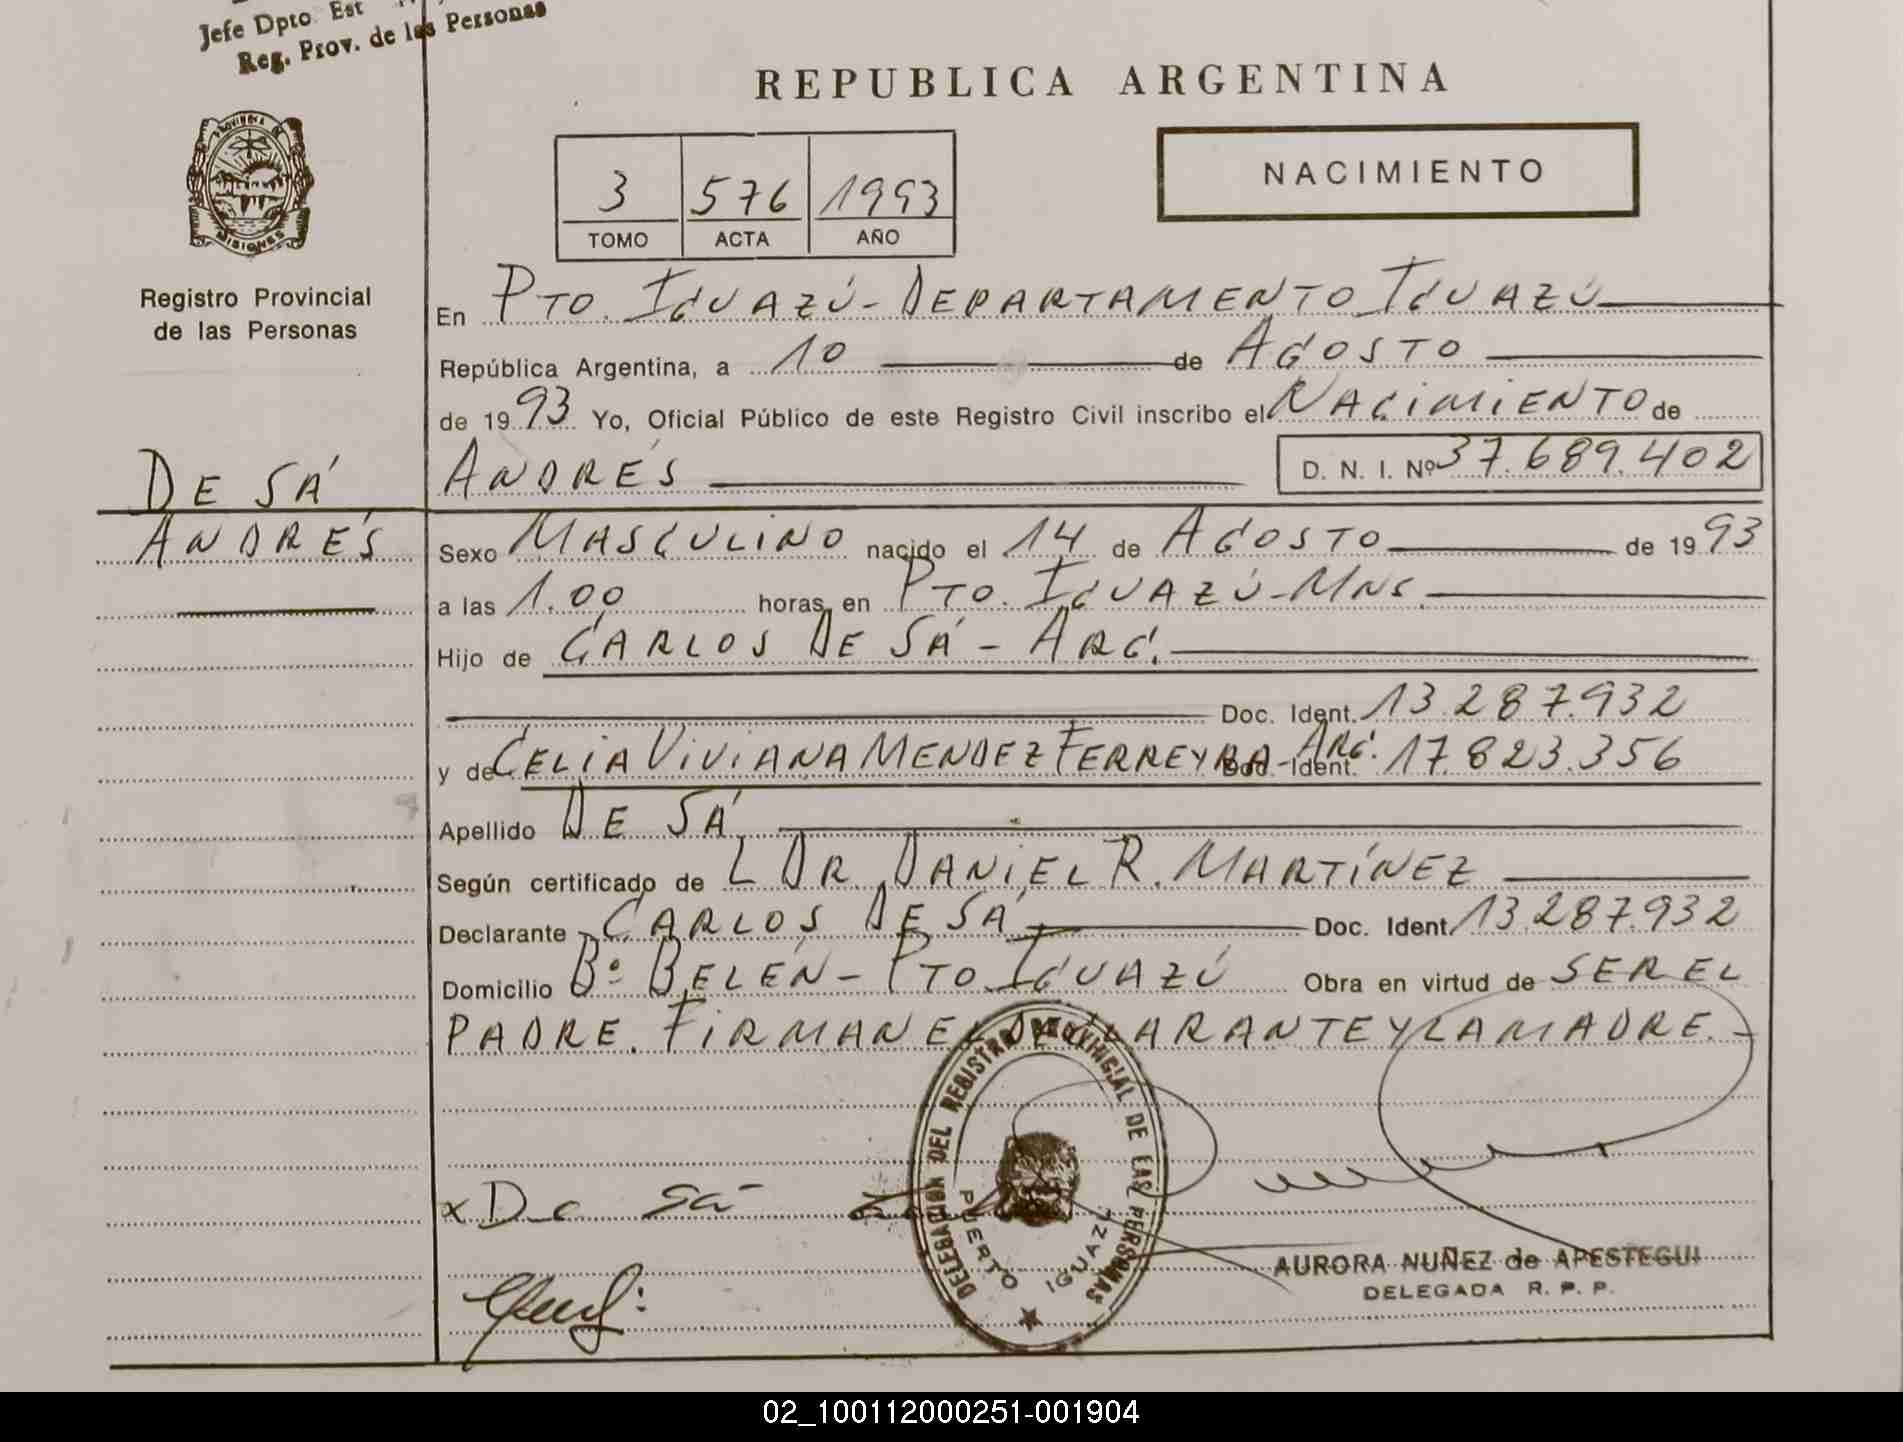 Jefe Dpto. Est
Reg. Prov. de las Personas
REPUBLICA ARGENTINA
PROVINCIA DE
MISIONES
Registro Provincial
de las Personas
3 576 1993
TOMO ACTA AÑO
NACIMIENTO
En PTO. IGUAZÚ - DEPARTAMENTO IGUAZÚ
República Argentina, a 10 de AGOSTO
de 1993 Yo, Oficial Público de este Registro Civil inscribo el NACIMIENTO de
ANDRÉS D. N. I. Nº 37.689.402
DE SÁ
ANDRÉS
Sexo MASCULINO nacido el 14 de AGOSTO de 1993
a las 1.00 horas, en PTO. IGUAZÚ - MNS.
Hijo de CARLOS DE SÁ - ARG.
Doc. Ident. 13.287.932
y de CELIA VIVIANA MENDEZ FERREYRA - ARG. Doc. Ident. 17.823.356
Apellido DE SÁ
Según certificado de L DR. DANIEL R. MARTÍNEZ
Declarante CARLOS DE SÁ Doc. Ident. 13.287.932
Domicilio Bº BELÉN - PTO. IGUAZÚ Obra en virtud de SER EL
PADRE. FIRMAN EL DECLARANTE Y LA MADRE.-
DELEGACION DEL REGISTRO PROVINCIAL DE LAS PERSONAS
PUERTO IGUAZU
x De Sá
AURORA NUÑEZ de APESTEGUI
DELEGADA R. P. P.
02_100112000251-001904